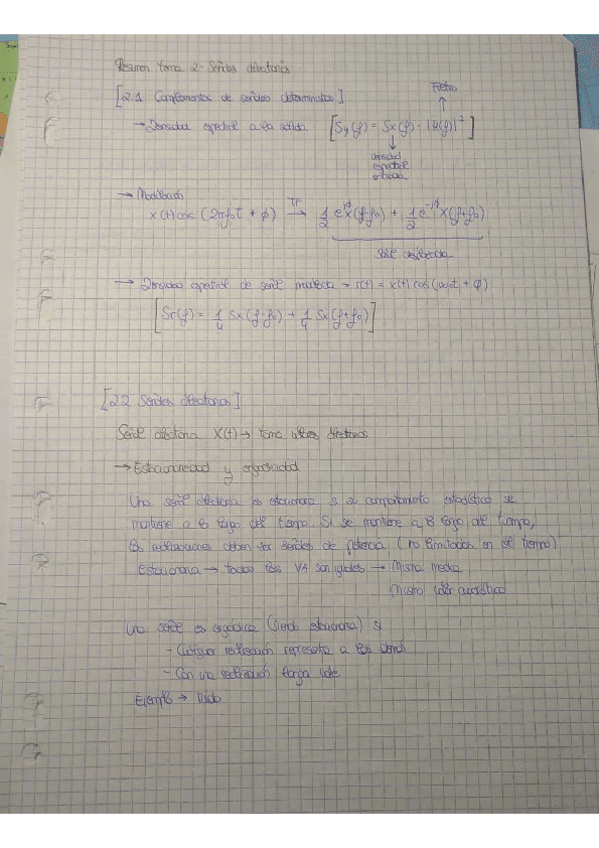 Resumen tema 2- Señales aleatorias
[2.1 Complementos de señales deterministas]
Filtro
→ Densidad espectral a la salida [Sy(f) = Sx(f) · |H(f)|²]
densidad
espectral
entrada
→ Modulación
x(t) cos (2πf₀t + φ) →TF 1/2 e^jφ X(f-f₀) + 1/2 e^-jφ X(f+f₀)
Señal
→ Densidad espectral de señal modulada → r(t) = x(t) cos(ω₀t + φ)
[Sr(f) = 1/4 Sx(f-f₀) + 1/4 Sx(f+f₀)]
[2.2 Señales aleatorias]
Señal aleatoria X(t) → toma valores aleatorios
→ Estacionariedad y ergodicidad
Una señal aleatoria es estacionaria si su comportamiento estadístico se
mantiene a lo largo del tiempo. Si se mantiene a lo largo del tiempo,
las realizaciones deben ser señales de potencia (no limitadas en el tiempo)
Estacionaria → todas las VA son iguales → Misma media
Mismo valor cuadrático
Una señal es ergódica (siendo estacionaria) si
- Cualquier realización representa a las demás
- Con una realización larga vale
Ejemplo → Ruido